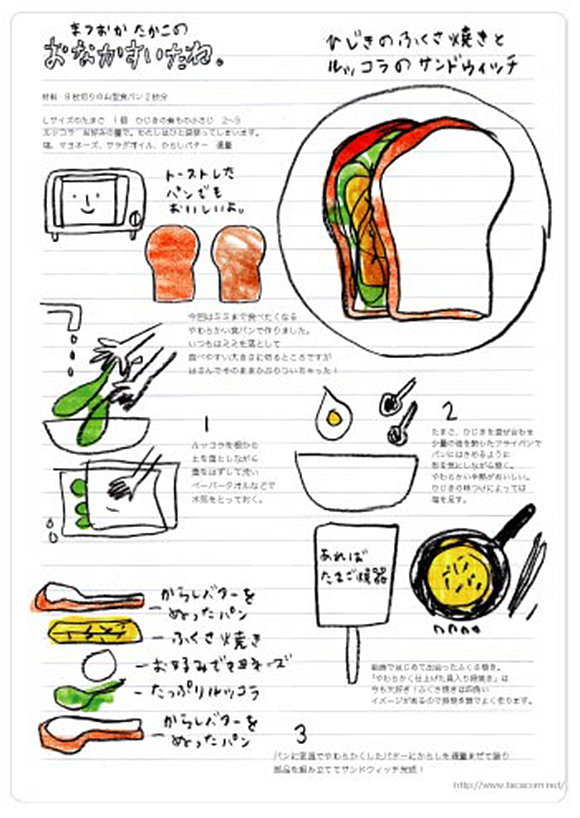 まつおか たかこの
おなかすいたね。
ひじきのふくさ焼きと
ルッコラのサンドウィッチ
材料 8枚切りの山型食パン2枚分
Lサイズのたまご 1個 ひじきの煮もの小さじ 2〜3
ルッコラ お好みの量で。わたしはひと袋使ってしまいます。
塩、マヨネーズ、サラダオイル、からしバター 適量
トーストした
パンでも
おいしいよ。
今回はミミまで食べたくなる
やわらかい食パンで作りました。
いつもはミミを落として
食べやすい大きさに切るところですが
はさんでそのままかぶりついちゃった！
1
ルッコラを根から
土を落としながら
葉をはずして洗い
ペーパータオルなどで
水気をとっておく。
2
たまご、ひじきを混ぜ合わせ
少量の油を熱したフライパンで
パンにはさめるように
形を気にしながら焼く。
やわらかい半熟がおいしい。
ひじきの味つけによっては
塩を足す。
あれば
たまご焼器
からしバターを
ぬったパン
ふくさ焼き
お好みでマヨネーズ
たっぷりルッコラ
からしバターを
ぬったパン
「やわらかく仕上げた具入り卵焼き」は
今も大好き！ふくさ焼きは四角い
イメージがあるので卵焼き器でよく作ります。
3
パンに室温でやわらかくしたバターにからしを適量まぜて塗り
部品を組み立ててサンドウィッチ完成！
http://www.tacacom.net/